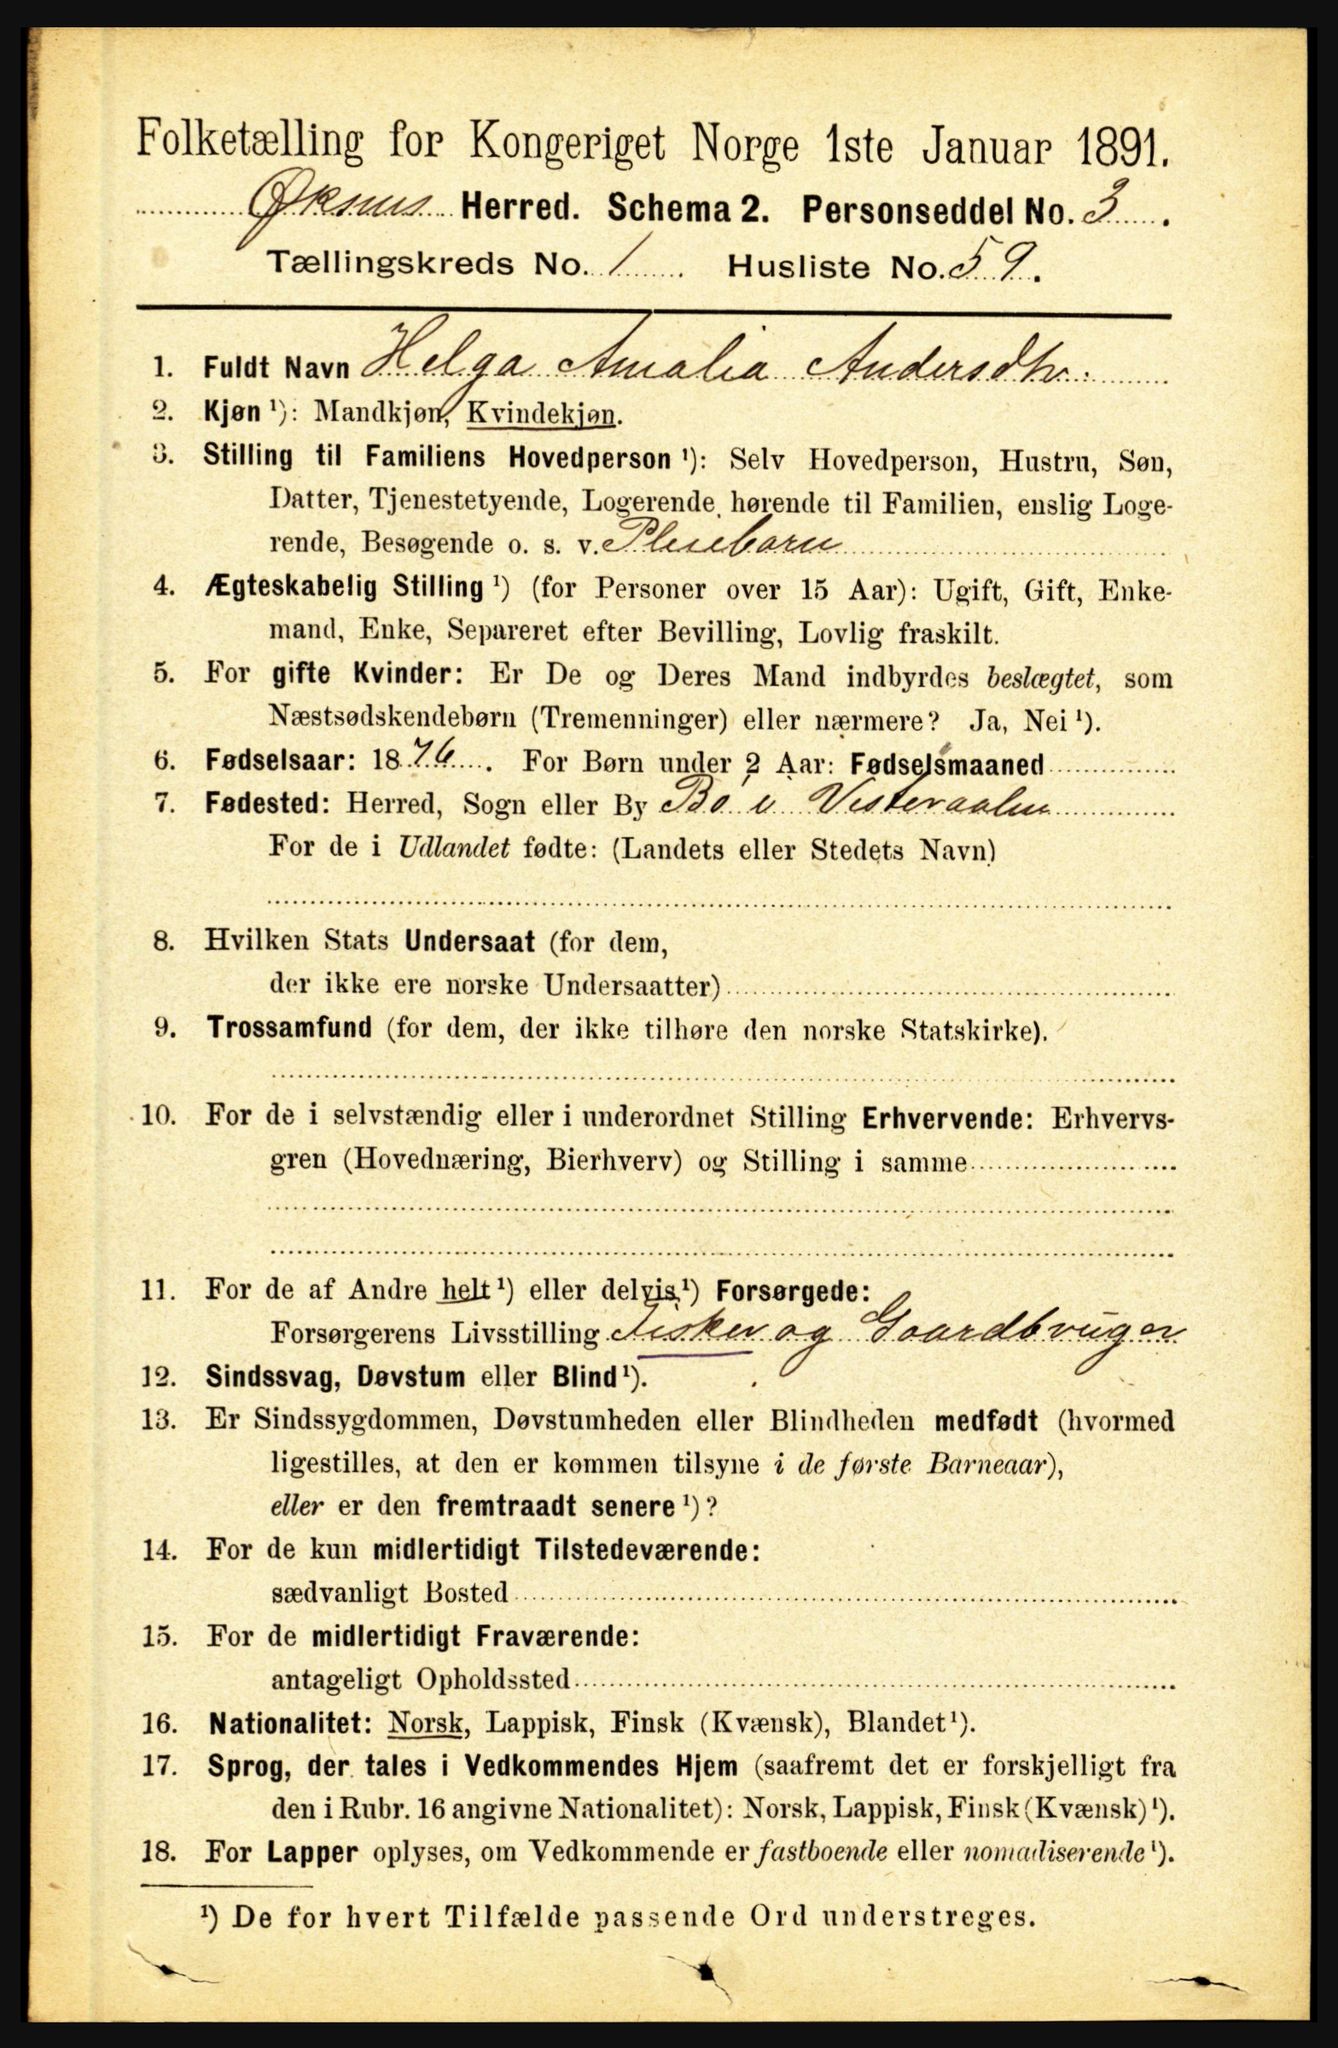 Folketælling for Kongeriget Norge 1ste Januar 1891.
Øksnes Herred. Schema 2. Personseddel No. 3.
Tællingskreds No. 1 Husliste No. 59.
1. Fuldt Navn Helga Amalia Andersdtr.
2. Kjøn ¹): Mandkjøn, Kvindekjøn.
3. Stilling til Familiens Hovedperson ¹): Selv Hovedperson, Hustru, Søn,
Datter, Tjenestetyende, Logerende hørende til Familien, enslig Loge-
rende, Besøgende o. s. v. Pleiebarn
4. Ægteskabelig Stilling ¹) (for Personer over 15 Aar): Ugift, Gift, Enke-
mand, Enke, Separeret efter Bevilling, Lovlig fraskilt.
5. For gifte Kvinder: Er De og Deres Mand indbyrdes beslægtet, som
Næstsødskendebørn (Tremenninger) eller nærmere? Ja, Nei ¹).
6. Fødselsaar: 1876. For Børn under 2 Aar: Fødselsmaaned
7. Fødested: Herred, Sogn eller By Bø i Vesteraalen
For de i Udlandet fødte: (Landets eller Stedets Navn)
8. Hvilken Stats Undersaat (for dem,
der ikke ere norske Undersaatter)
9. Trossamfund (for dem, der ikke tilhøre den norske Statskirke).
10. For de i selvstændig eller i underordnet Stilling Erhvervende: Erhvervs-
gren (Hovednæring, Bierhverv) og Stilling i samme
11. For de af Andre helt ¹) eller delvis ¹) Forsørgede:
Forsørgerens Livsstilling Fisker og Gaardbruger
12. Sindssvag, Døvstum eller Blind ¹).
13. Er Sindssygdommen, Døvstumheden eller Blindheden medfødt (hvormed
ligestilles, at den er kommen tilsyne i de første Barneaar),
eller er den fremtraadt senere ¹)?
14. For de kun midlertidigt Tilstedeværende:
sædvanligt Bosted
15. For de midlertidigt Fraværende:
antageligt Opholdssted
16. Nationalitet: Norsk, Lappisk, Finsk (Kvænsk), Blandet ¹).
17. Sprog, der tales i Vedkommendes Hjem (saafremt det er forskjelligt fra
den i Rubr. 16 angivne Nationalitet): Norsk, Lappisk, Finsk (Kvænsk) ¹).
18. For Lapper oplyses, om Vedkommende er fastboende eller nomadiserende ¹).
¹) De for hvert Tilfælde passende Ord understreges.